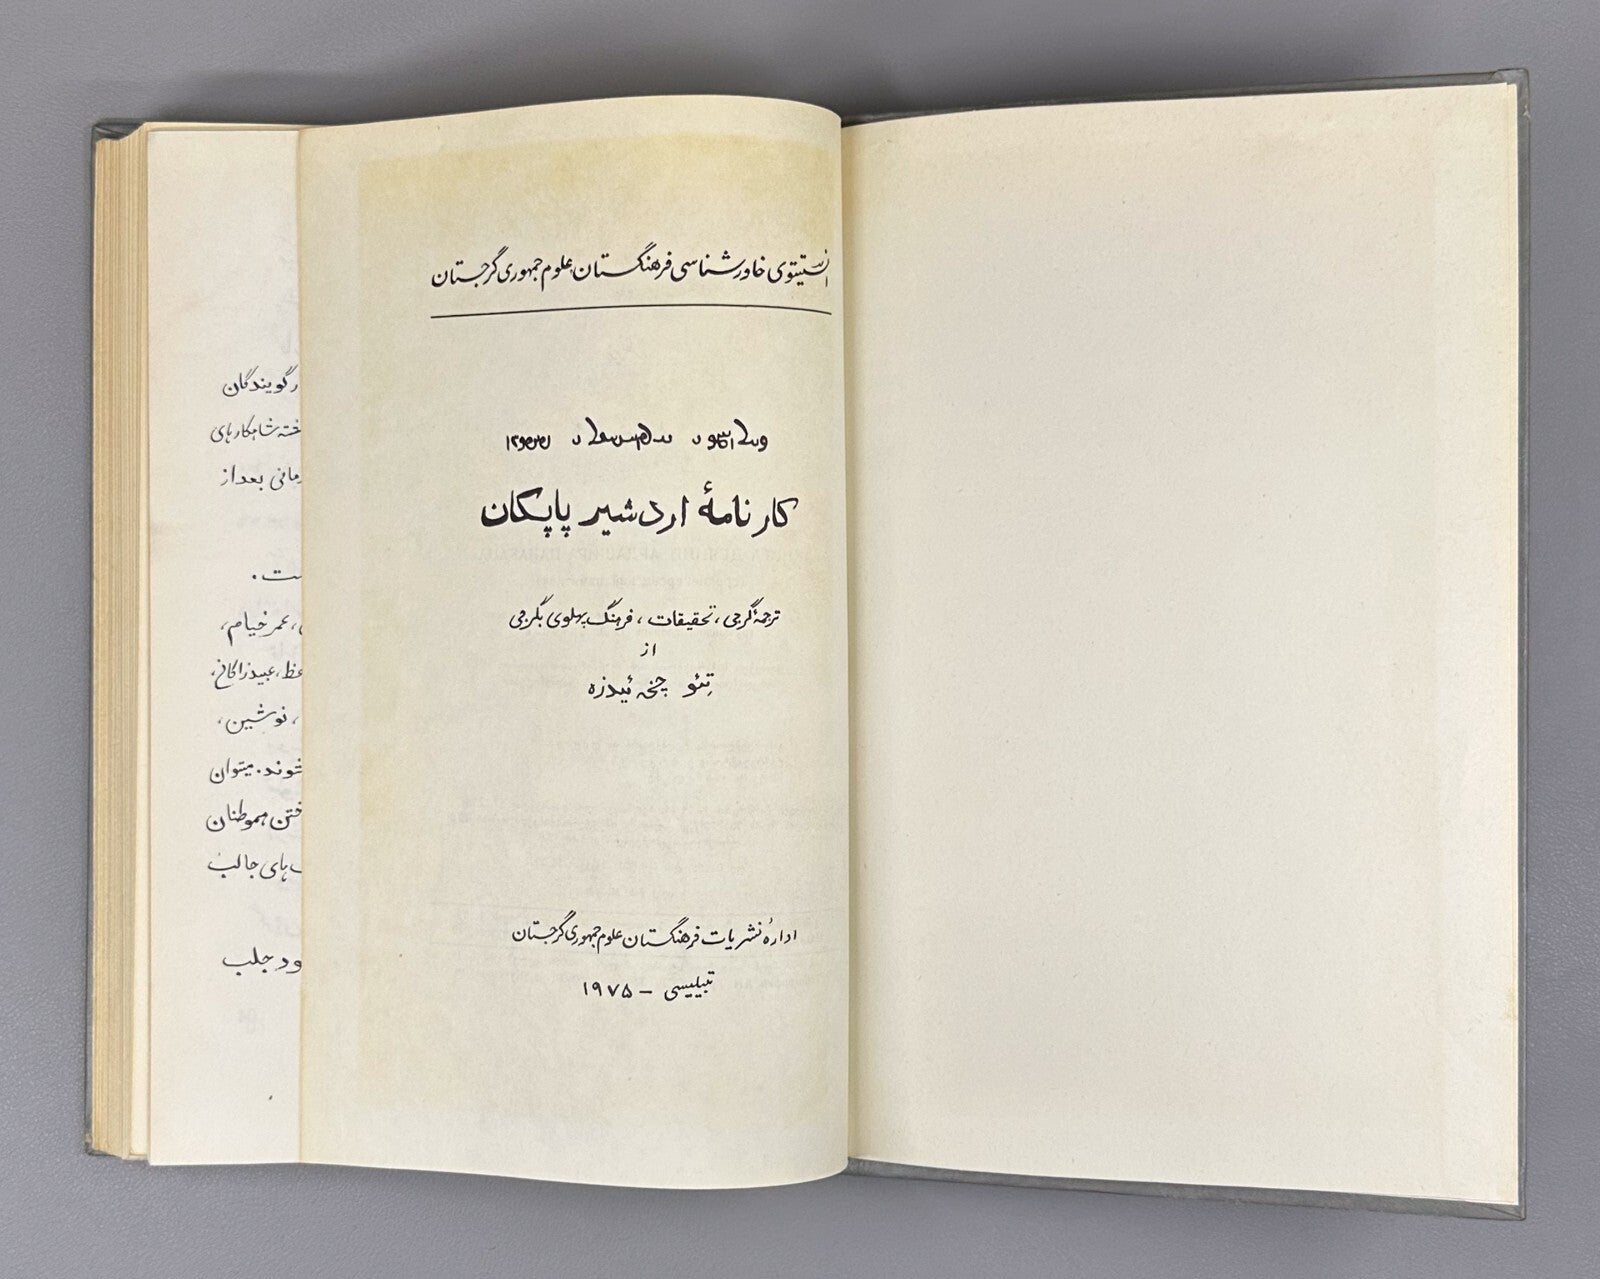 انستیتوی خاورشناسی فرهنگستان علوم جمهوری گرجستان
کارنامهٔ اردشیر پاپکان
ترجمهٔ گرجی، تحقیقات، فرهنگ پهلوی بگرجی
از
تِئو چخه ئیدزه
ادارهٔ نشریات فرهنگستان علوم جمهوری گرجستان
تبیلیسی – ۱۹۷۵
رگویندگان
شاهکارهای
بعداز
عمرخیام،
عبیدزاکانی،
، نوشین،
شوند. میتوان
هموطنان
های جالب
جلب